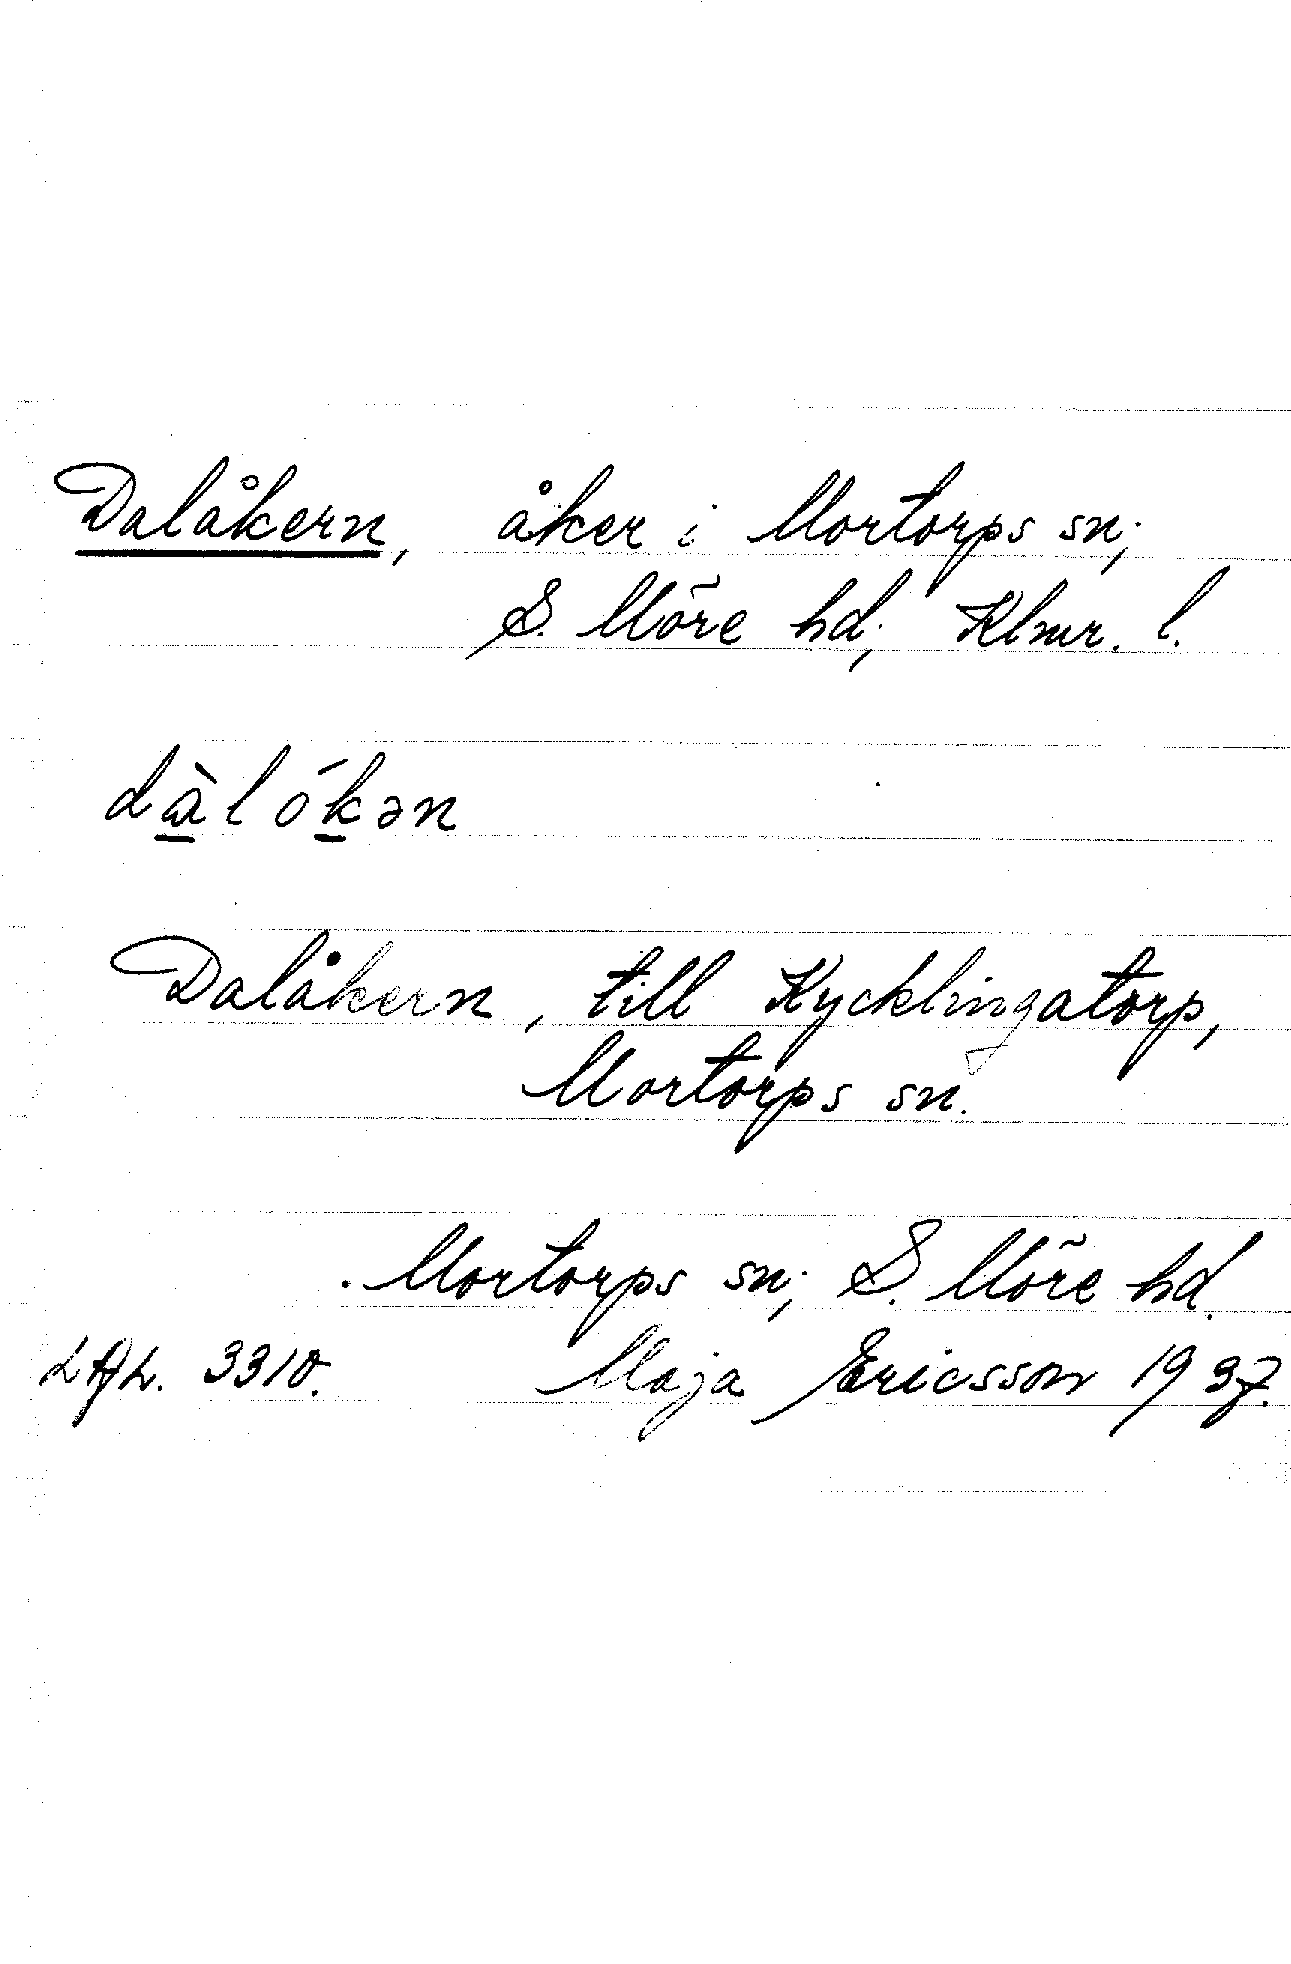 Dalåkern, åker i Mortorps sn;
S. Möre hd; Klmr. l.
dàlókən
Dalåkern, till Kycklingatorp,
Mortorps sn.
Mortorps sn; S. Möre hd.
3310. Maja Ericsson 1937.